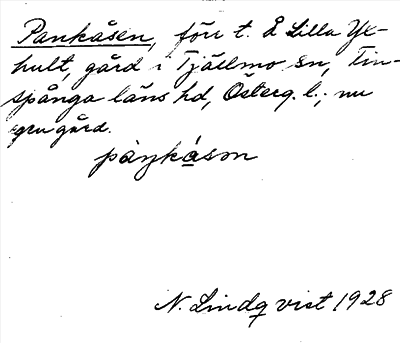 Pankåsen, förr t. å Lilla Yx-
hult, gård i Tjällmo sn, Fin-
spånga läns hd, Österg. l.; nu
gård.
pàŋkåsən
N. Lindqvist 1928